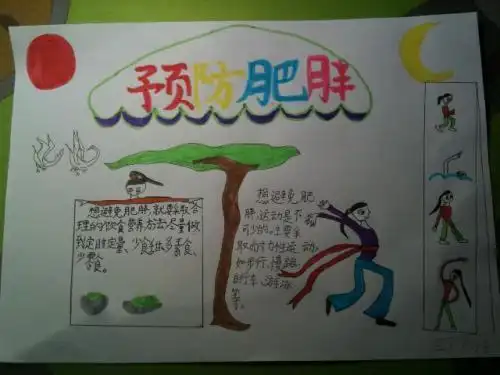 预防肥胖
想避免肥胖，就要采取合
理的饮食营养方法，尽量做
到定时定量、少食甜多素食、
少零食。
想避免肥
胖，运动是不
可少的。主要采
取耐力性运动，
如步行、慢跑、
自行车、游泳
等。